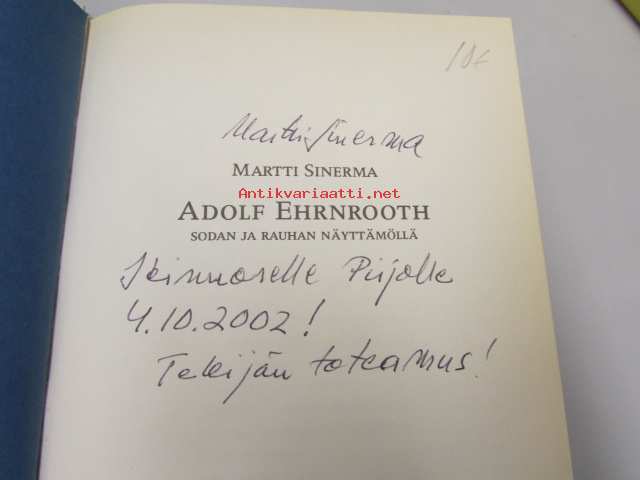 10€
Martti Sinerma
MARTTI SINERMA
Antikvariaatti.net
ADOLF EHRNROOTH
SODAN JA RAUHAN NÄYTTÄMÖLLÄ
Pirjolle
4.10.2002!
Tekijän toteamus!